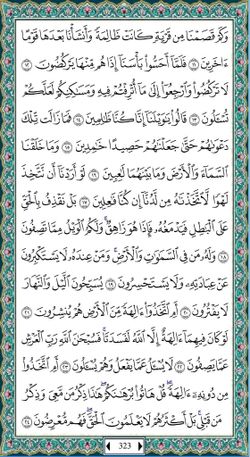 وَكَمْ قَصَمْنَا مِن قَرْيَةٍ كَانَتْ ظَالِمَةً وَأَنشَأْنَا بَعْدَهَا قَوْمًا
ءَاخَرِينَ ١١ فَلَمَّآ أَحَسُّوا۟ بَأْسَنَآ إِذَا هُم مِّنْهَا يَرْكُضُونَ ١٢
لَا تَرْكُضُوا۟ وَٱرْجِعُوٓا۟ إِلَىٰ مَآ أُتْرِفْتُمْ فِيهِ وَمَسَٰكِنِكُمْ لَعَلَّكُمْ
تُسْـَٔلُونَ ١٣ قَالُوا۟ يَٰوَيْلَنَآ إِنَّا كُنَّا ظَٰلِمِينَ ١٤ فَمَا زَالَت تِّلْكَ
دَعْوَىٰهُمْ حَتَّىٰ جَعَلْنَٰهُمْ حَصِيدًا خَٰمِدِينَ ١٥ وَمَا خَلَقْنَا
ٱلسَّمَآءَ وَٱلْأَرْضَ وَمَا بَيْنَهُمَا لَٰعِبِينَ ١٦ لَوْ أَرَدْنَآ أَن نَّتَّخِذَ
لَهْوًا لَّٱتَّخَذْنَٰهُ مِن لَّدُنَّآ إِن كُنَّا فَٰعِلِينَ ١٧ بَلْ نَقْذِفُ بِٱلْحَقِّ
عَلَى ٱلْبَٰطِلِ فَيَدْمَغُهُۥ فَإِذَا هُوَ زَاهِقٌ ۚ وَلَكُمُ ٱلْوَيْلُ مِمَّا تَصِفُونَ
١٨ وَلَهُۥ مَن فِى ٱلسَّمَٰوَٰتِ وَٱلْأَرْضِ ۚ وَمَنْ عِندَهُۥ لَا يَسْتَكْبِرُونَ
عَنْ عِبَادَتِهِۦ وَلَا يَسْتَحْسِرُونَ ١٩ يُسَبِّحُونَ ٱلَّيْلَ وَٱلنَّهَارَ
لَا يَفْتُرُونَ ٢٠ أَمِ ٱتَّخَذُوٓا۟ ءَالِهَةً مِّنَ ٱلْأَرْضِ هُمْ يُنشِرُونَ ٢١
لَوْ كَانَ فِيهِمَآ ءَالِهَةٌ إِلَّا ٱللَّهُ لَفَسَدَتَا ۚ فَسُبْحَٰنَ ٱللَّهِ رَبِّ ٱلْعَرْشِ
عَمَّا يَصِفُونَ ٢٢ لَا يُسْـَٔلُ عَمَّا يَفْعَلُ وَهُمْ يُسْـَٔلُونَ ٢٣ أَمِ ٱتَّخَذُوا۟
مِن دُونِهِۦٓ ءَالِهَةً ۖ قُلْ هَاتُوا۟ بُرْهَٰنَكُمْ ۖ هَٰذَا ذِكْرُ مَن مَّعِىَ وَذِكْرُ
مَن قَبْلِى ۗ بَلْ أَكْثَرُهُمْ لَا يَعْلَمُونَ ٱلْحَقَّ ۖ فَهُم مُّعْرِضُونَ ٢٤
323